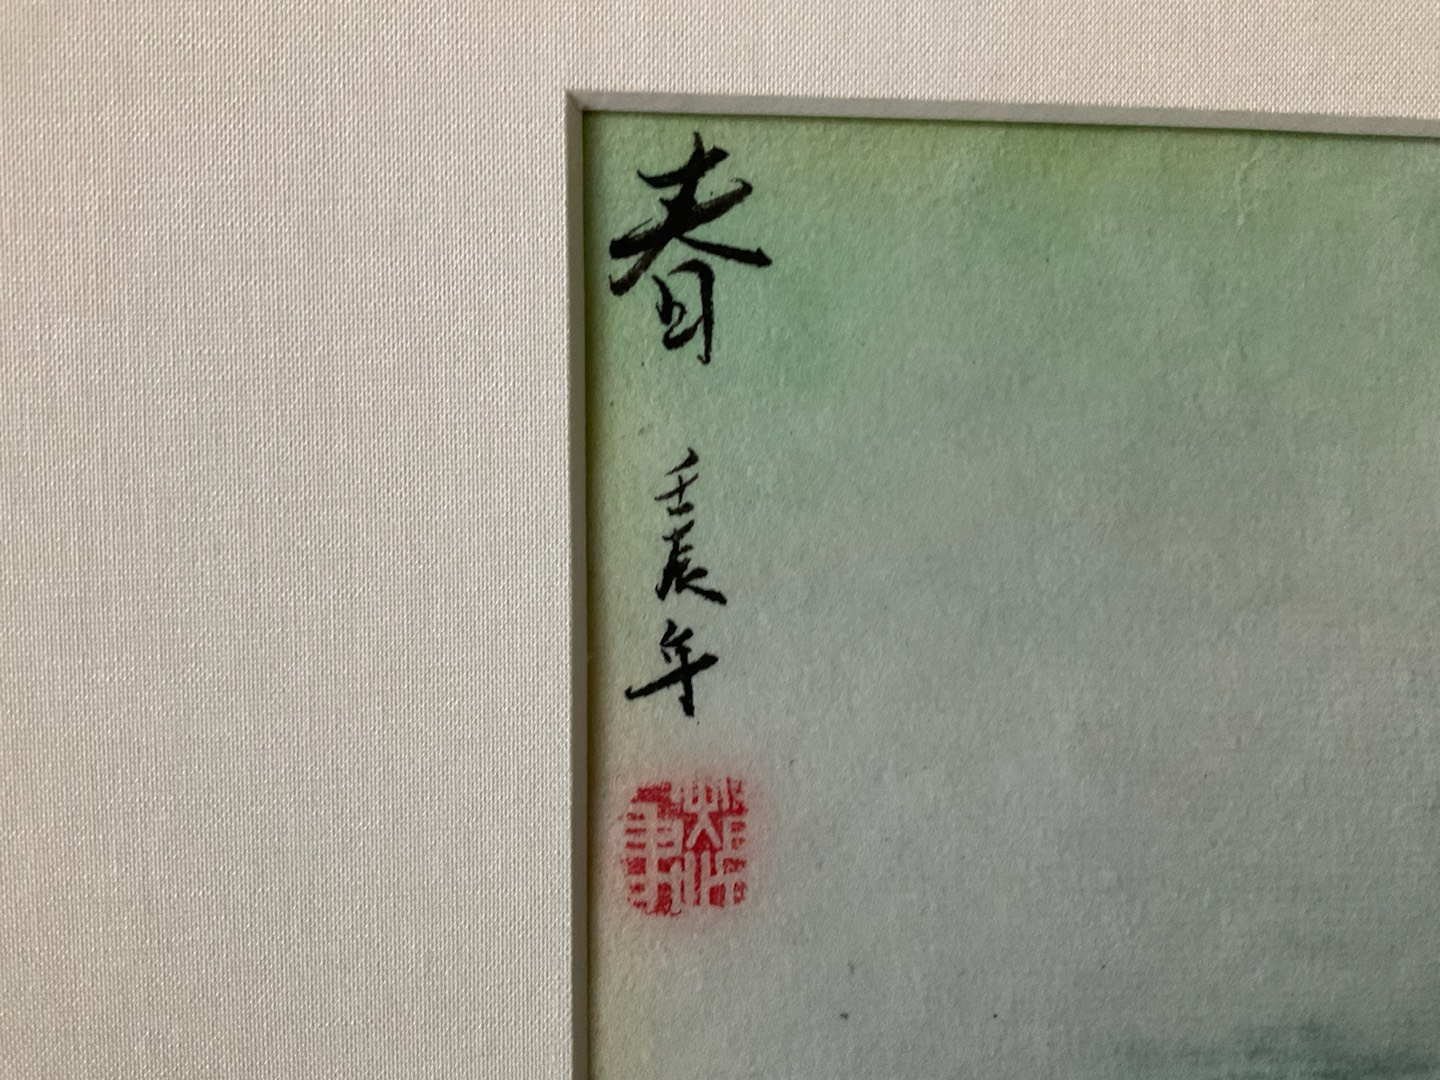 春
壬辰年